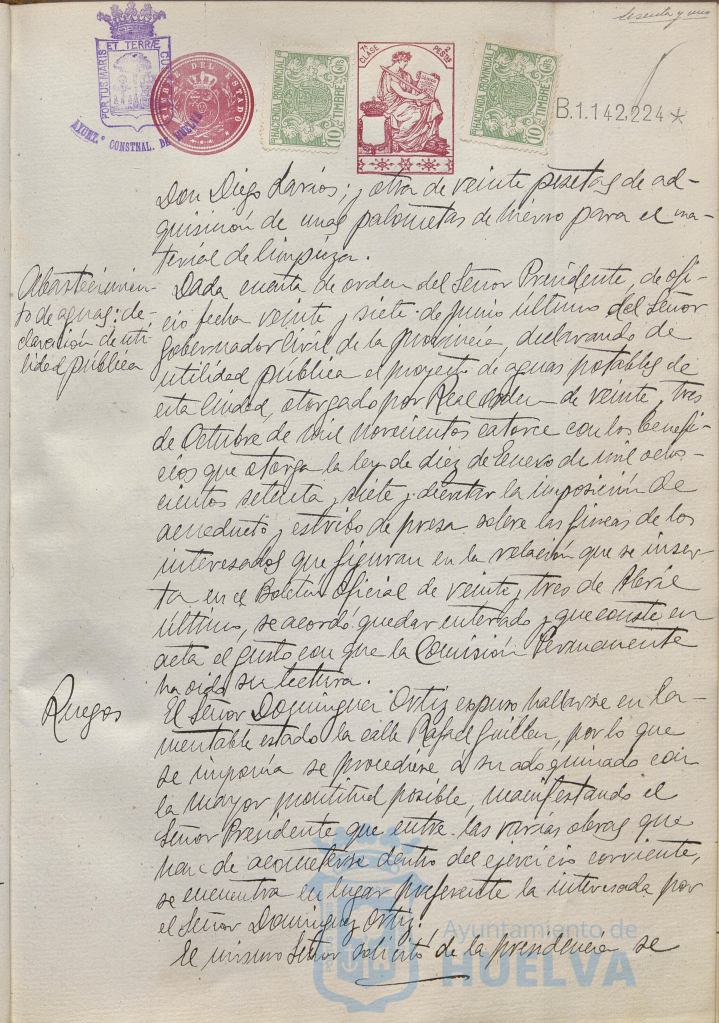 sesenta y uno
PORTUS MARIS ET TERRÆ CUSTODIA
AYUNT.º CONSTNAL. DE HUELVA
TIMBRE DEL ESTADO
HACIENDA PROVINCIAL
TIMBRE
10 Cts
7ª CLASE
2 PESTAS
HACIENDA PROVINCIAL
TIMBRE
10 Cts
B.1.142,224*
Don Diego Larios; y otra de veinte pesetas de ad-
quisición de unas palometas de hierro para el ma-
terial de limpieza.
Abastecimien-
to de aguas: de-
claración de uti-
lidad pública
Dada cuenta de orden del Señor Presidente, de ofi-
cio fecha veinte y siete de Junio último del Señor
Gobernador Civil de la Provincia, declarando de
utilidad pública el proyecto de aguas potables de
esta Ciudad, otorgado por Real Orden de veinte y tres
de Octubre de mil novecientos catorce con los benefi-
cios que otorga la ley de diez de Enero de mil ocho-
cientos setenta y siete y decretar la imposición de
acueducto y estribo de presa sobre las fincas de los
interesados que figuran en la relación que se inser-
ta en el Boletín Oficial de veinte y tres de Abril
último, se acordó quedar enterado y que conste en
acta el gusto con que la Comisión Permanente
ha oido su lectura.
Ruegos
El Señor Dominguez Ortiz expuso hallarse en la-
mentable estado la calle Rafael Guillen, por lo que
se imponia se procediese a su adoquinado con
la mayor prontitud posible, manifestando el
Señor Presidente que entre las varias obras que
han de acometerse dentro del ejercicio corriente,
se encuentra en lugar preferente la interesada por
el Señor Dominguez Ortiz.
El mismo Señor solicitó de la presidencia se
Ayuntamiento de
HUELVA